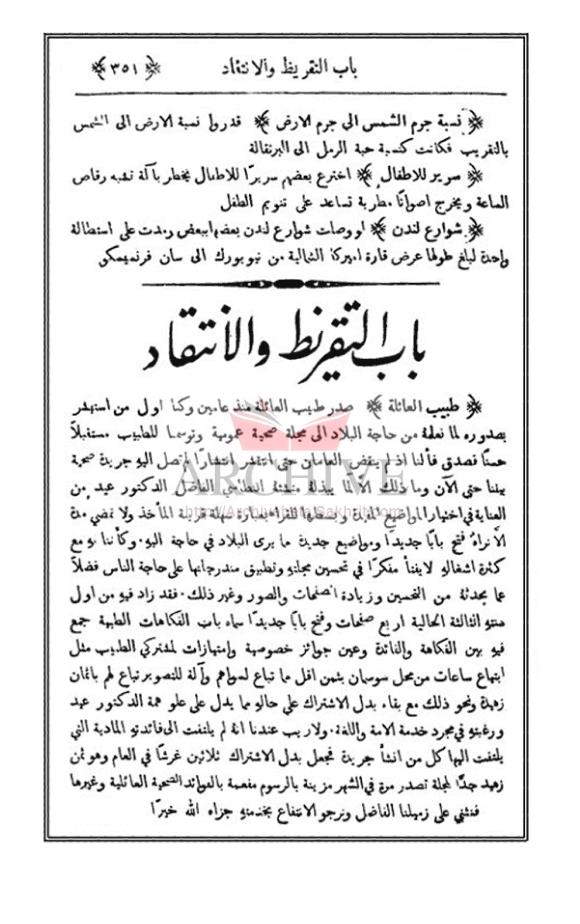 باب التقريظ والانتقاد
﴿٣٥١﴾
﴿نسبة جرم الشمس الى جرم الارض﴾ قدروا نسبة الارض الى الشمس
بالتقريب فكانت كنسبة حبة الرمل الى البرتقالة
﴿سرير للاطفال﴾ اخترع بعضهم سريرًا للاطفال يخطر بآلة تشبه رقاص
الساعة ويخرج اصواتًا مطربة تساعد على تنويم الطفل
﴿شوارع لندن﴾ لو وصلت شوارع لندن بعضها ببعض ومدت على استطالة
واحدة لبلغ طولها عرض قارة اميركا الشمالية من نيويورك الى سان فرنسيسكو
باب التقريظ والانتقاد
﴿طبيب العائلة﴾ صدر طبيب العائلة منذ عامين وكنا اول من استبشر
بصدوره لما نعلمه من حاجة البلاد الى مجلة صحية عمومية وتوسمنا للطبيب مستقبلاً
حسنًا فصدق فألنا اذ لم ينقض العامان حتى انتشر انتشارًا لم تصل اليه جريدة صحية
بيننا حتى الآن وما ذلك الا لما يبذله منشئه النطاسي الفاضل الدكتور عيد من
العناية في اختيار المواضيع المفيدة وبسطها للقراء بعبارة سهلة قريبة المأخذ ولا تمضي مدة
الا نراه فتح بابًا جديدًا ومواضيع جديدة مما يرى البلاد في حاجة اليه وكأننا به مع
كثرة اشغاله لا يفتأ مفكرًا في تحسين مجلته وتطبيق مندرجاتها على حاجة الناس فضلاً
عما يحدثه من التحسين وزيادة الصفحات والصور وغير ذلك. فقد زاد فيه من اول
سنته الثالثة الحالية اربع صفحات وفتح بابًا جديدًا سماه باب الفكاهات الطبية جمع
فيه بين الفكاهة والفائدة وعين جوائز خصوصية وامتيازات لمشتركي الطبيب مثل
ابتياع ساعات من محل سوسمان بثمن اقل مما تباع لسواهم وآلة للتصوير تباع لهم باثمان
زهيدة ونحو ذلك مع بقاء بدل الاشتراك على حاله مما يدل على علو همة الدكتور عيد
ورغبته في مجرد خدمة الامة واللغة. ولا ريب عندنا انه لم يلتفت الى فائدته المادية التي
يلتفت اليها كل من انشأ جريدة فجعل بدل الاشتراك ثلاثين غرشًا في العام وهو ثمن
زهيد جدًا لمجلة تصدر مرة في الشهر مزينة بالرسوم مفعمة بالفوائد الصحية العائلية وغيرها
فنثني على زميلنا الفاضل ونرجو الانتفاع بخدمته جزاه الله خيرًا
ARCHIVE
http://Archivebeta.Sakhrit.com